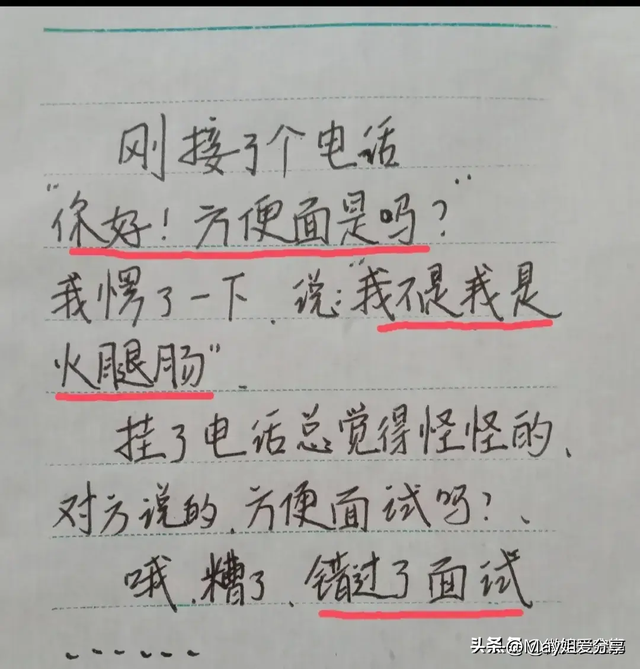 刚接了个电话
"你好！方便面是吗？"
我愣了一下、说："我不是我是
火腿肠"、
挂了电话总觉得怪怪的、
对方说的、方便面试吗？、
哦、糟了、错过了面试
......
头条@May姐爱分享